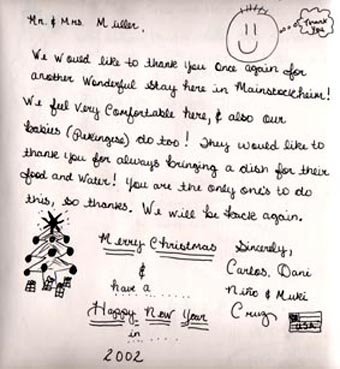 Mr. & Mrs. Muller,
Thank
You
We would like to thank you once again for
another wonderful stay here in Mainstockheim!
We feel very comfortable here, & also our
babies (Pekingese) do too! They would like to
thank you for always bringing a dish for their
food and water! You are the only one's to do
this, so thanks. We will be back again.
Merry Christmas
&
have a
Happy New Year
in
2002
Sincerely,
Carlos, Dani
Niño & Muki
Cruz
U.S.A.